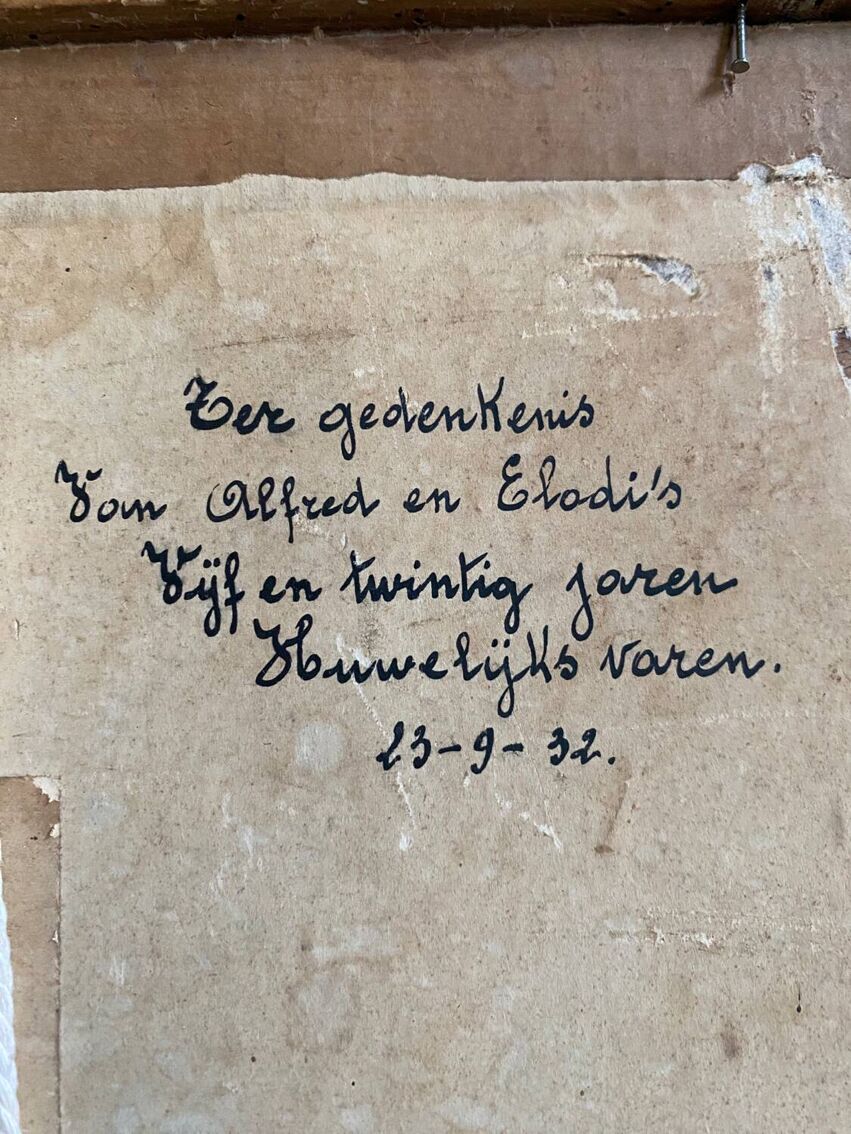 Ter gedenkenis
Van Alfred en Elodi's
Vijf en twintig jaren
Huwelijks varen.
23-9-32.